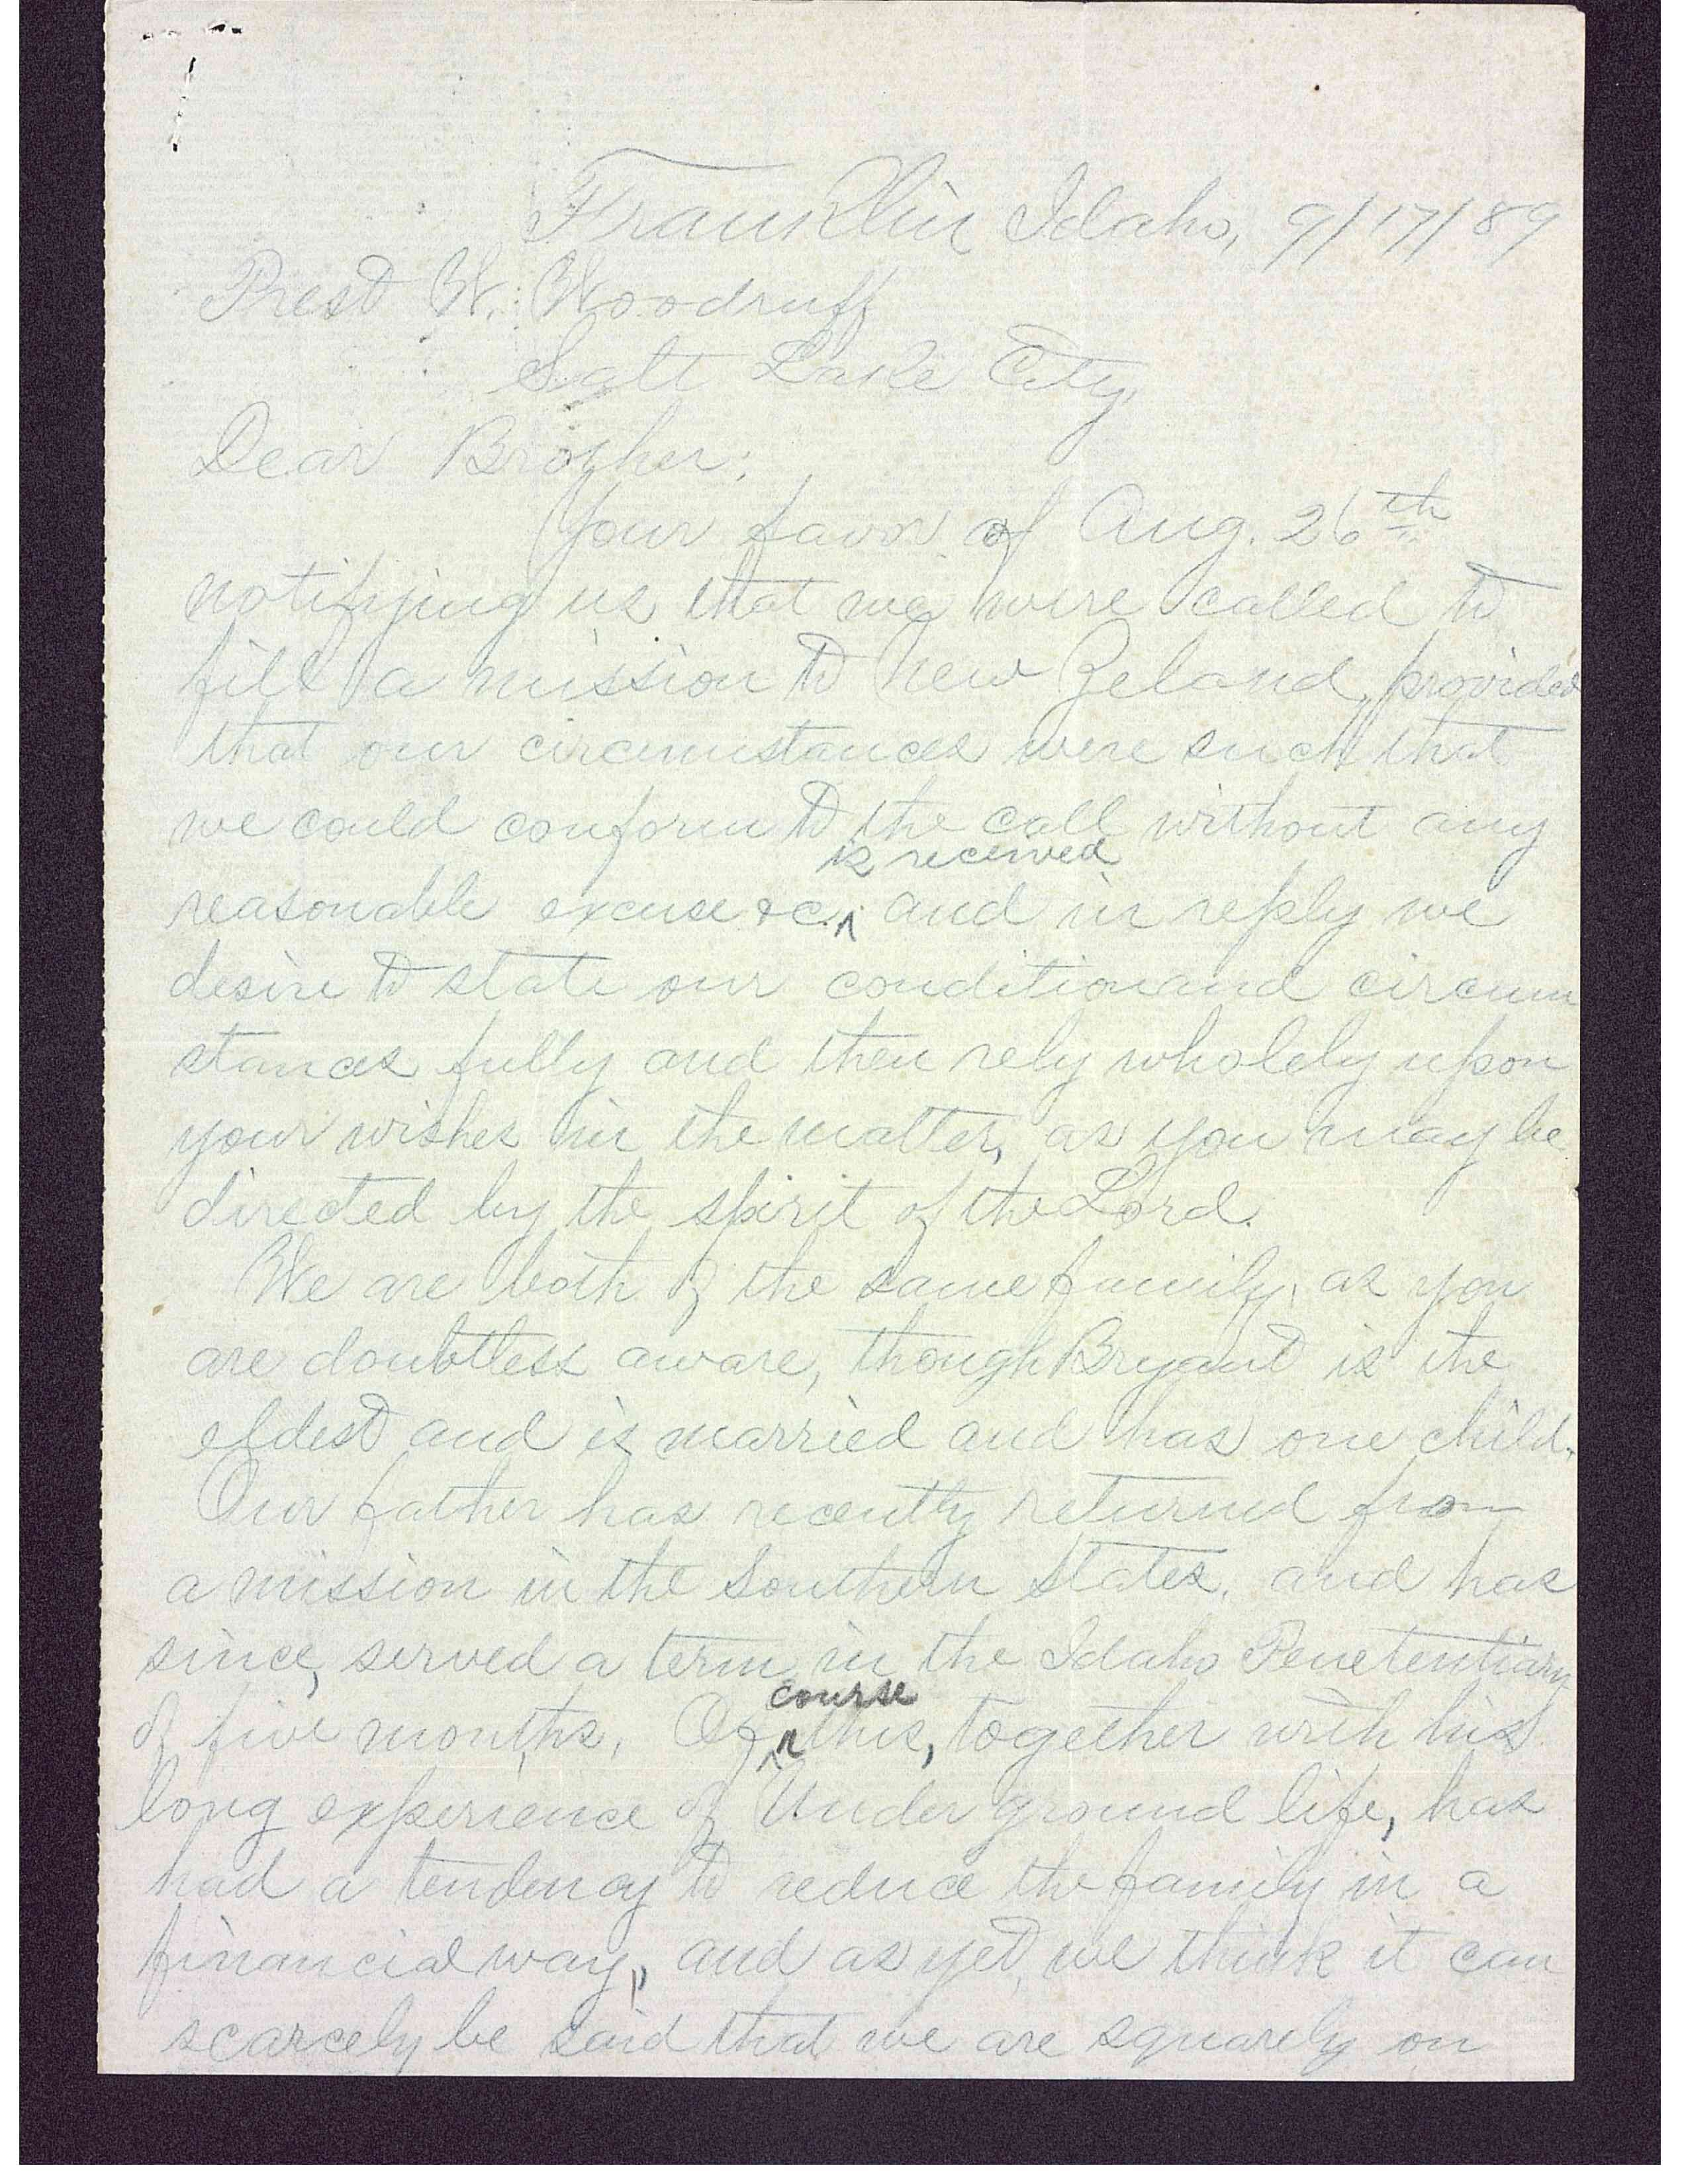 Franklin Idaho, 9/17/89
Prest W. Woodruff
Salt Lake City,
Dear Brother;
Your favor of Aug. 26th
notifying us that we were called to
fill a mission to New Zeland, provided
that our circumstances were such that
we could conform to the call without any
is received
reasonable excuse &c.^ and in reply we
desire to state our condition and circum
stances fully and then rely wholely upon
your wishes in the matter, as you may be
directed by the spirit of the Lord.
We are both of the same family, as you
are doubtless aware, though Bryant is the
eldest and is married and has one child.
Our father has recently returned from
a mission in the Southern States, and has
since, served a term in the Idaho Penetentiary
course
of five months. Of ^ this, together with his
long experience of Under ground life, has
had a tendency to reduce the family in a
financial way, and as yet, we think it can
scarcely be said that we are squarely on